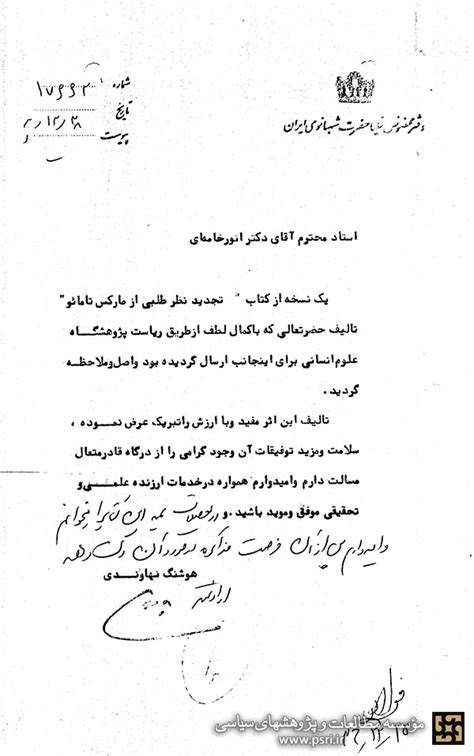 شماره ۱۷۶۶۲
تاریخ
پیوست
دفتر مخصوص علیاحضرت شهبانوی ایران
استاد محترم آقای دکتر انورخامه‌ای
یک نسخه از کتاب " تجدید نظر طلبی از مارکس تا مائو"
تالیف حضرتعالی که باکمال لطف ازطریق ریاست پژوهشگاه
علوم‌انسانی برای اینجانب ارسال گردیده بود واصل‌وملاحظه
گردید .
تالیف این اثر مفید وبا ارزش راتبریک عرض نموده ،
سلامت ومزید توفیقات آن وجود گرامی را از درگاه قادرمتعال
مسالت دارم وامیدوارم همواره درخدمات ارزنده علمی و
تحقیقی موفق وموید باشید . و در تعطیلات کتاب را
وامیدوارم پس از آن فرصت مذاکره در مورد آن دست دهد
هوشنگ نهاوندی
ارادتمند
مؤسسه مطالعات و پژوهشهای سیاسی
www.psri.ir